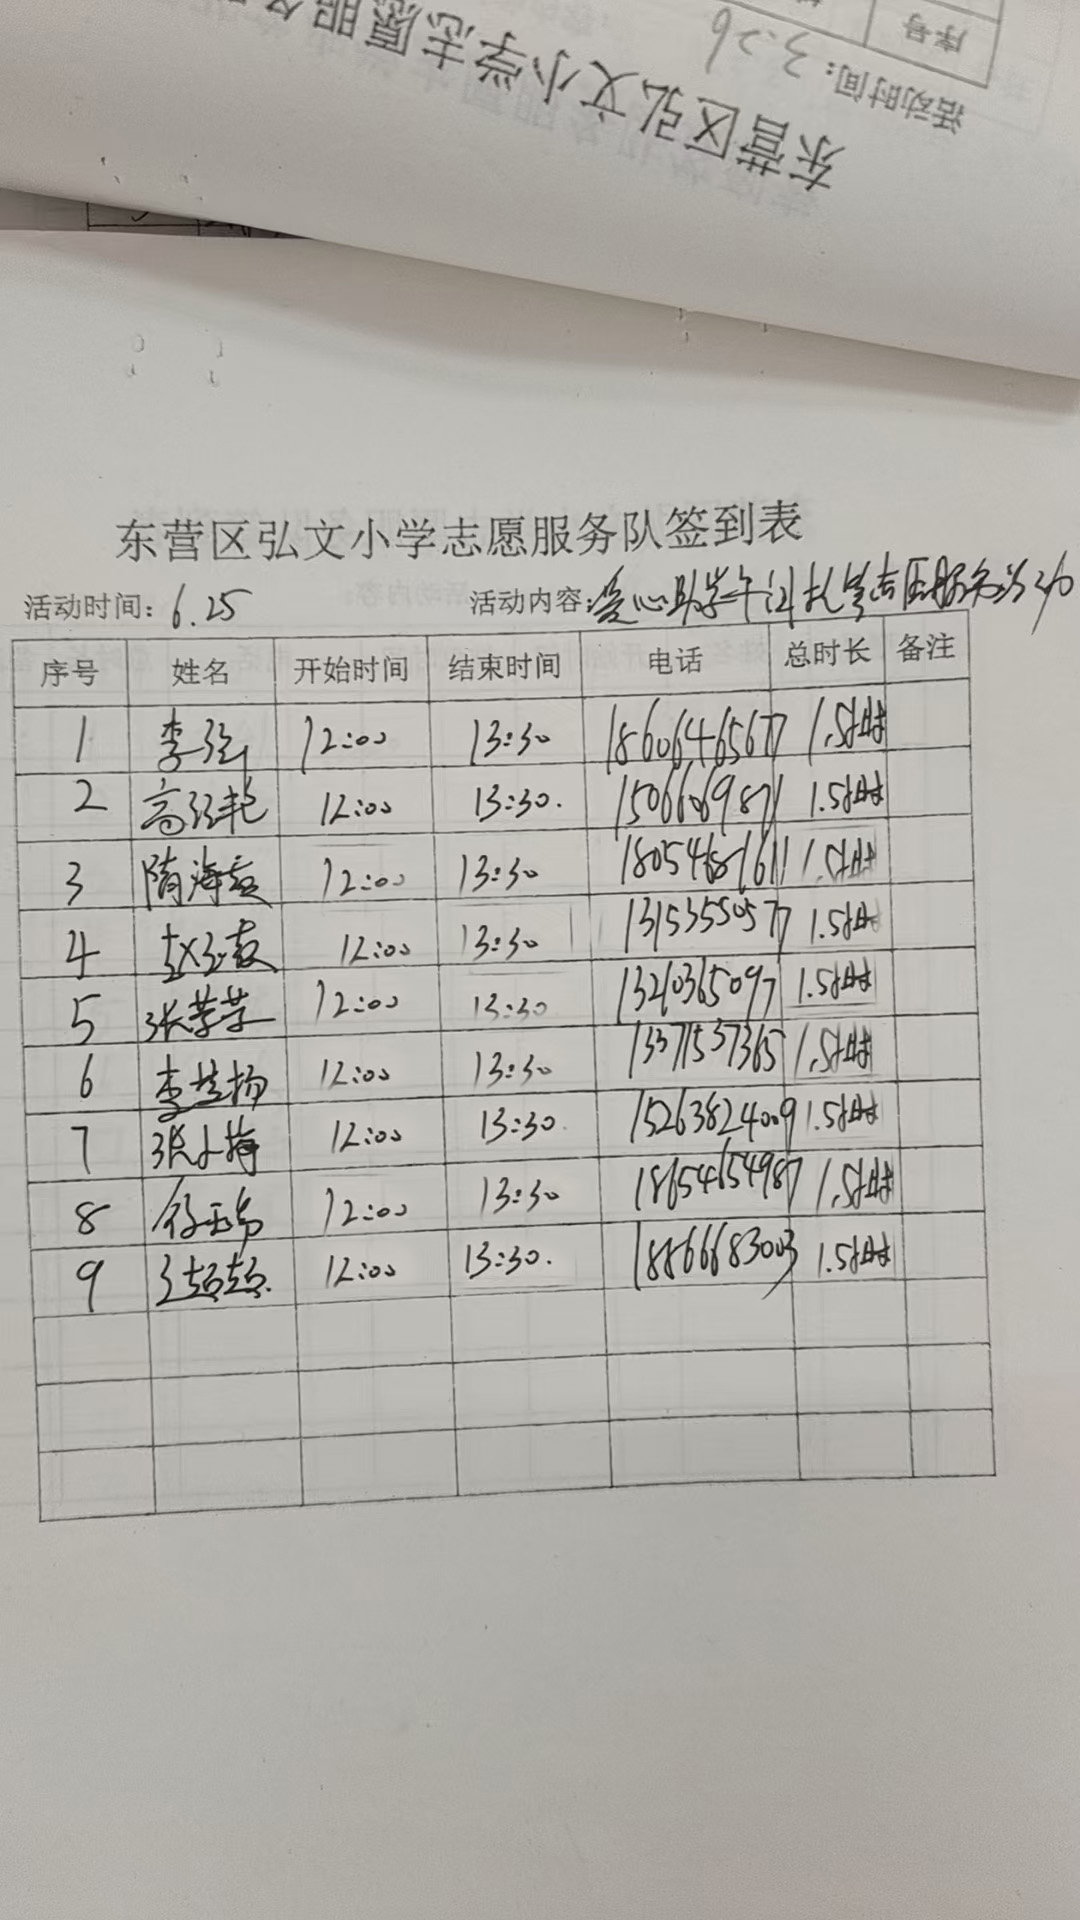 东营区弘文小学志愿服
活动时间：3.26
序号
东营区弘文小学志愿服务队签到表
活动时间：6.25 活动内容：爱心助学午间托管志愿服务活动
序号 姓名 开始时间 结束时间 电话 总时长 备注
1 李 12:00 13:30 18606465677 1.5小时
2 高红艳 12:00 13:30. 15066069871 1.5小时
3 隋海 12:00 13:30 18054681611 1.5小时
4 赵 12:00 13:30 13153550577 1.5小时
5 张芳芳 12:00 13:30 13210365097 1.5小时
6 李 12:00 13:30 13371537365 1.5小时
7 张小梅 12:00 13:30 15263824009 1.5小时
8 徐 12:00 13:30 18654654987 1.5小时
9 12:00 13:30. 18866683003 1.5小时